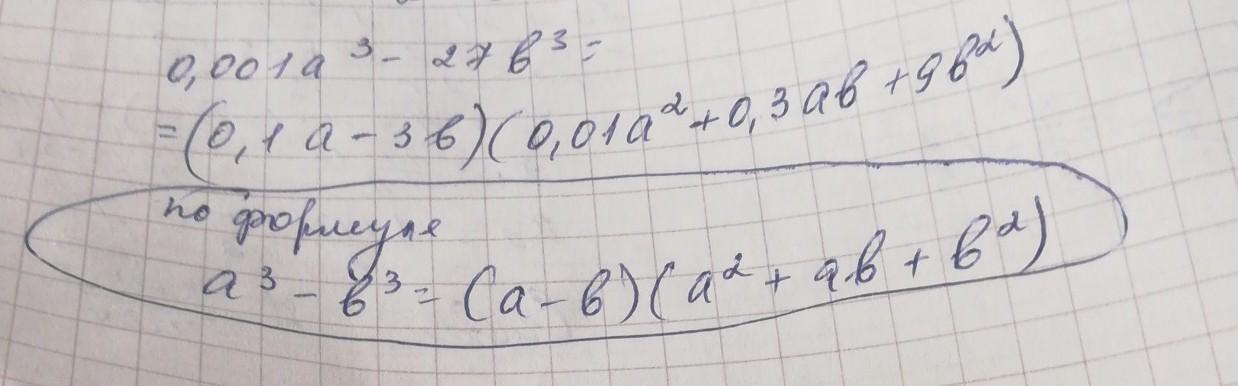 0,001a³ - 27b³ =
= (0,1a - 3b)(0,01a² + 0,3ab + 9b²)
по формуле
a³ - b³ = (a - b)(a² + ab + b²)